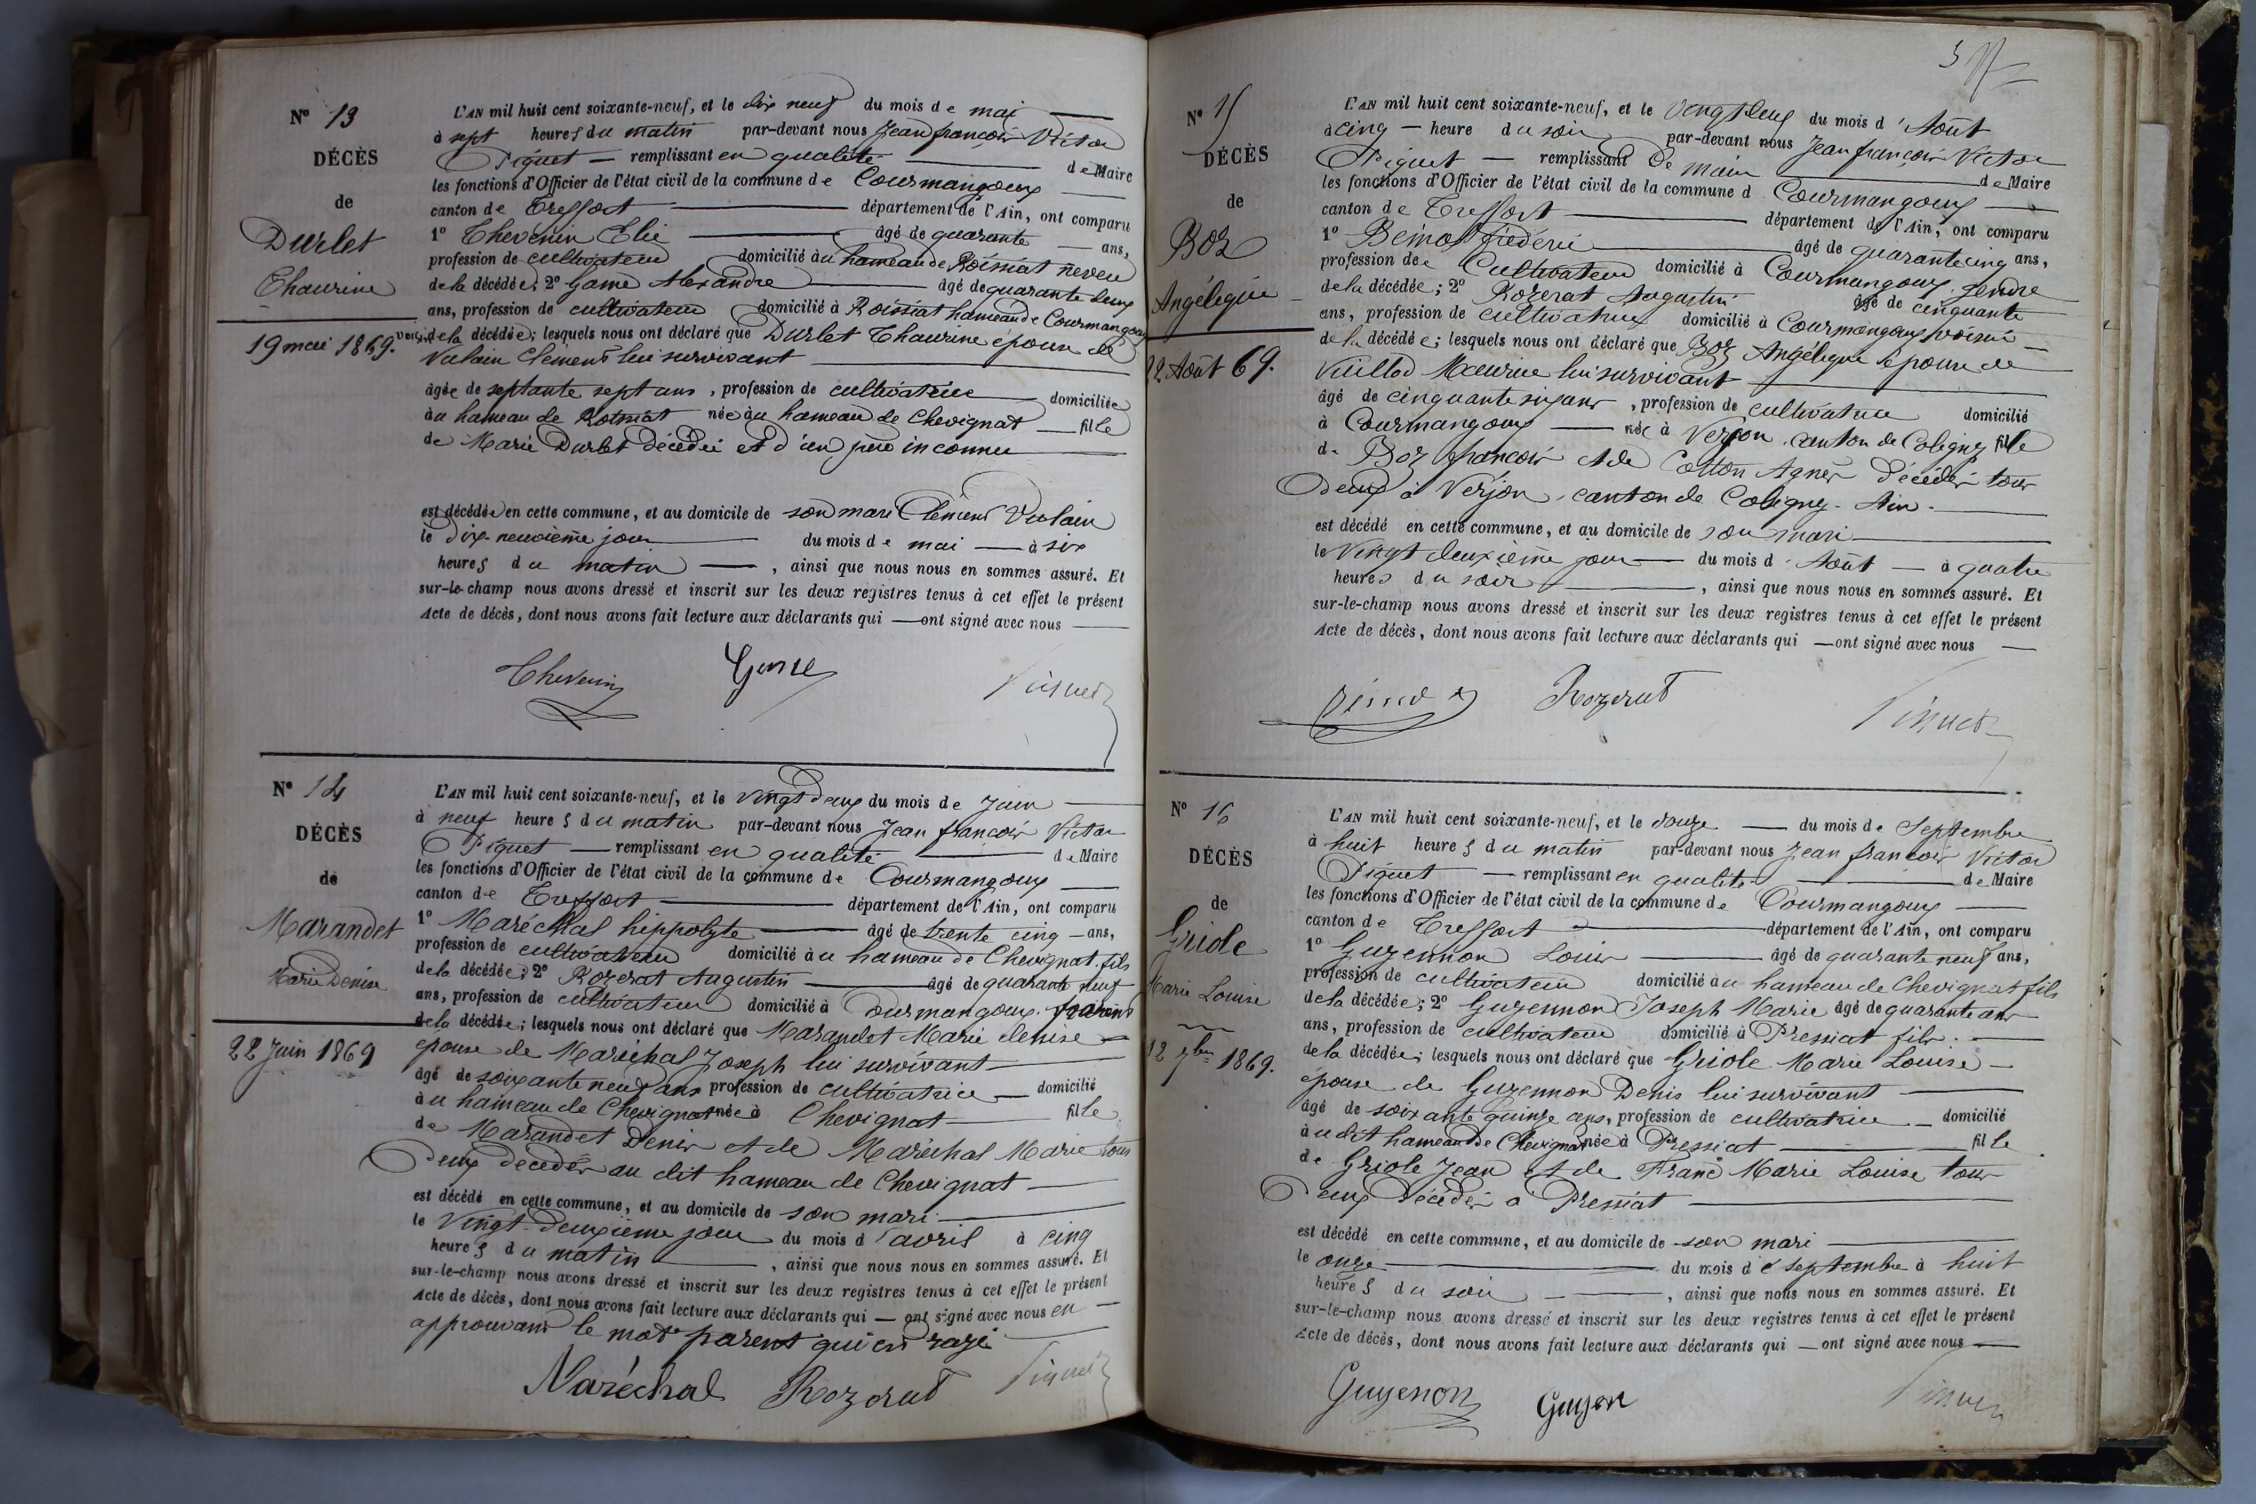 N° 13
DÉCÈS
de
Durlet
Thaurine
19 mai 1869.
L'AN mil huit cent soixante-neuf, et le dix neuf du mois de mai
à sept heures du matin par-devant nous Jean françois Victor
Piquet remplissant en qualité de Maire
les fonctions d'Officier de l'état civil de la commune de Courmangoux
canton de Treffort département de l'Ain, ont comparu
1° Thevenin Elie âgé de quarante ans,
profession de cultivateur domicilié au hameau de Roissiat neveu
de la décédée; 2° Game Alexandre âgé de quarante deux
ans, profession de cultivateur domicilié à Roissiat hameau de Courmangoux
de la décédée; lesquels nous ont déclaré que Durlet Thaurine épouse de
Vulain Clement lui survivant
âgée de septante sept ans, profession de cultivatrice domiciliée
au hameau de née au hameau de Chevignat fille
de Marie Durlet décédée et d'un père inconnu
est décédée en cette commune, et au domicile de son mari Clément Vulain
le dix-neuvième jour du mois de mai à six
heures du matin, ainsi que nous nous en sommes assuré. Et
sur-le-champ nous avons dressé et inscrit sur les deux registres tenus à cet effet le présent
Acte de décès, dont nous avons fait lecture aux déclarants qui ont signé avec nous
Thevenin
N° 14
DÉCÈS
de
Marandet
Marie Denise
22 Juin 1869
L'AN mil huit cent soixante-neuf, et le vingt deux du mois de Juin
à neuf heures du matin par-devant nous Jean françois Victor
Piquet remplissant en qualité de Maire
les fonctions d'Officier de l'état civil de la commune de Courmangoux
canton de Treffort département de l'Ain, ont comparu
1° Maréchal hippolyte âgé de trente cinq ans,
profession de cultivateur domicilié au hameau de Chevignat fils
de la décédée; 2° Rozerat Augustin âgé de quarante neuf
ans, profession de cultivateur domicilié à Courmangoux
de la décédée; lesquels nous ont déclaré que Marandet Marie denise
épouse de Maréchal Joseph lui survivant
âgé de soixante neuf ans profession de cultivatrice domicilié
au hameau de Chevignat née à Chevignat fille
de Marandet Denis et de Maréchal Marie tous
deux décédés au dit hameau de Chevignat
est décédé en cette commune, et au domicile de son mari
le vingt-deuxième jour du mois d'avril à cinq
heures du matin, ainsi que nous nous en sommes assuré. Et
sur-le-champ nous avons dressé et inscrit sur les deux registres tenus à cet effet le présent
Acte de décès, dont nous avons fait lecture aux déclarants qui ont signé avec nous en
approuvant le mot parent qui est rayé
Maréchal Rozerat
N° 15
DÉCÈS
de
Boz
Angélique
22 Août 69.
L'AN mil huit cent soixante-neuf, et le vingt deux du mois d'Août
à cinq heure du soir par-devant nous Jean françois Victor
Piquet remplissant de maire de Maire
les fonctions d'Officier de l'état civil de la commune d Courmangoux
canton de Treffort département de l'Ain, ont comparu
1° fréderic âgé de quarante cinq ans,
profession de Cultivateur domicilié à Courmangoux gendre
de la décédée; 2° Rozerat Augustin âgé de cinquante
ans, profession de cultivateur domicilié à Courmangoux voisin
de la décédée; lesquels nous ont déclaré que Boz Angélique épouse de
Vuillod Maurice lui survivant
âgé de cinquante six ans, profession de cultivatrice domicilié
à Courmangoux née à Verjon canton de Coligny fille
de Boz françois et de Cotton Agnès décédés tous
deux à Verjon, canton de Coligny. Ain.
est décédé en cette commune, et au domicile de son mari
le vingt deuxième jour du mois d'Août à quatre
heures du soir, ainsi que nous nous en sommes assuré. Et
sur-le-champ nous avons dressé et inscrit sur les deux registres tenus à cet effet le présent
Acte de décès, dont nous avons fait lecture aux déclarants qui ont signé avec nous
Rozerat
N° 16
DÉCÈS
de
Griole
Marie Louise
12 7bre 1869.
L'AN mil huit cent soixante-neuf, et le douze du mois de Septembre
à huit heures du matin par-devant nous Jean françois Victor
Piquet remplissant en qualité de Maire
les fonctions d'Officier de l'état civil de la commune de Courmangoux
canton de Treffort département de l'Ain, ont comparu
1° Guyennon Louis âgé de quarante neuf ans,
profession de cultivateur domicilié au hameau de Chevignat fils
de la décédée; 2° Guyennon Joseph Marie âgé de quarante ans
ans, profession de cultivateur domicilié à Pressiat fils.
de la décédée; lesquels nous ont déclaré que Griole Marie Louise
épouse de Guyennon Denis lui survivant
âgé de soixante quinze ans, profession de cultivatrice domicilié
au dit hameau de Chevignat née à Pressiat fille
de Griole Jean et de Franc Marie Louise tous
deux décédés à Pressiat
est décédé en cette commune, et au domicile de son mari
le onze du mois de septembre à huit
heures du soir, ainsi que nous nous en sommes assuré. Et
sur-le-champ nous avons dressé et inscrit sur les deux registres tenus à cet effet le présent
Acte de décès, dont nous avons fait lecture aux déclarants qui ont signé avec nous
Guyenon Guyon